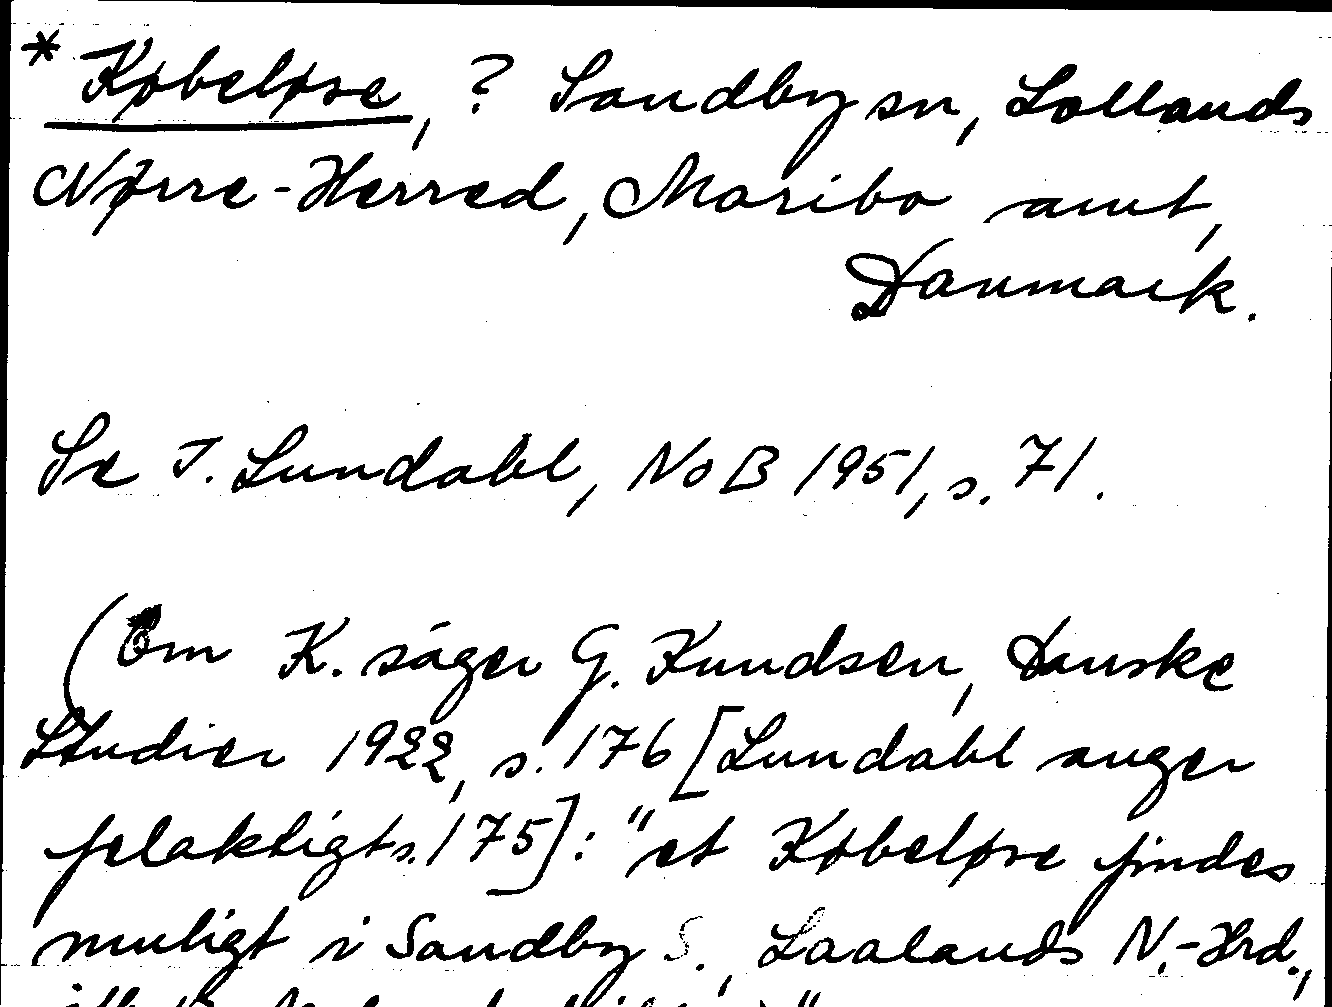 * Købeløse, ? Sandby sn, Lollands
Nørre-Herred, Maribo amt,
Danmark.
Se I. Lundahl, NoB 1951, s. 71.
(Om K. säger G. Knudsen, Danske
Studier 1922, s. 176 [Lundahl anger
felaktigt s. 175]: "et Købeløse findes
muligt i Sandby S., Laalands N.-Hrd.,